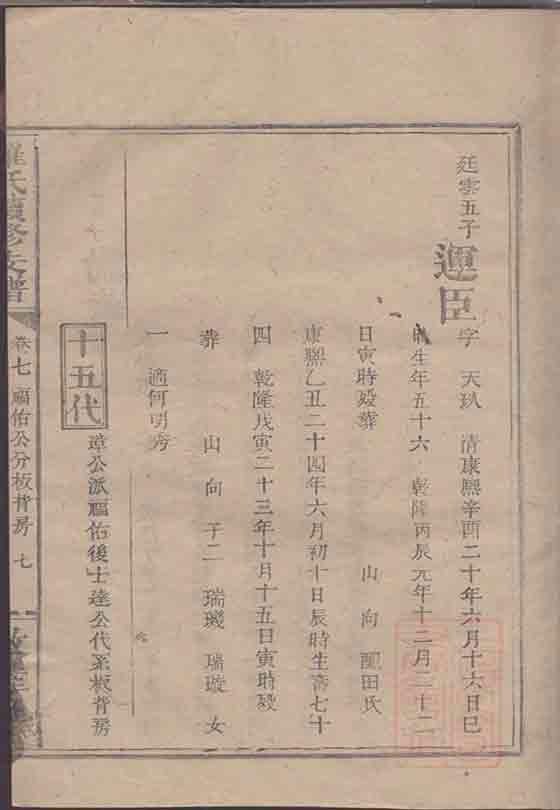 廷雲五子
運臣
字　天玖　清康熙辛酉二十年六月十六日巳
時生年五十六　乾隆丙辰元年十二月二十二
日寅時歿葬　山　向　配田氏
康熙乙丑二十四年六月初十日辰時生壽七十
四　乾隆戊寅二十三年十月十五日寅時歿
葬　山　向　子二　瑞璣　瑞璇　女
一　適何明秀
十五代
璋公派福佑後士達公代系板背房
羅氏續修支譜
卷七　福佑公分板背房　七